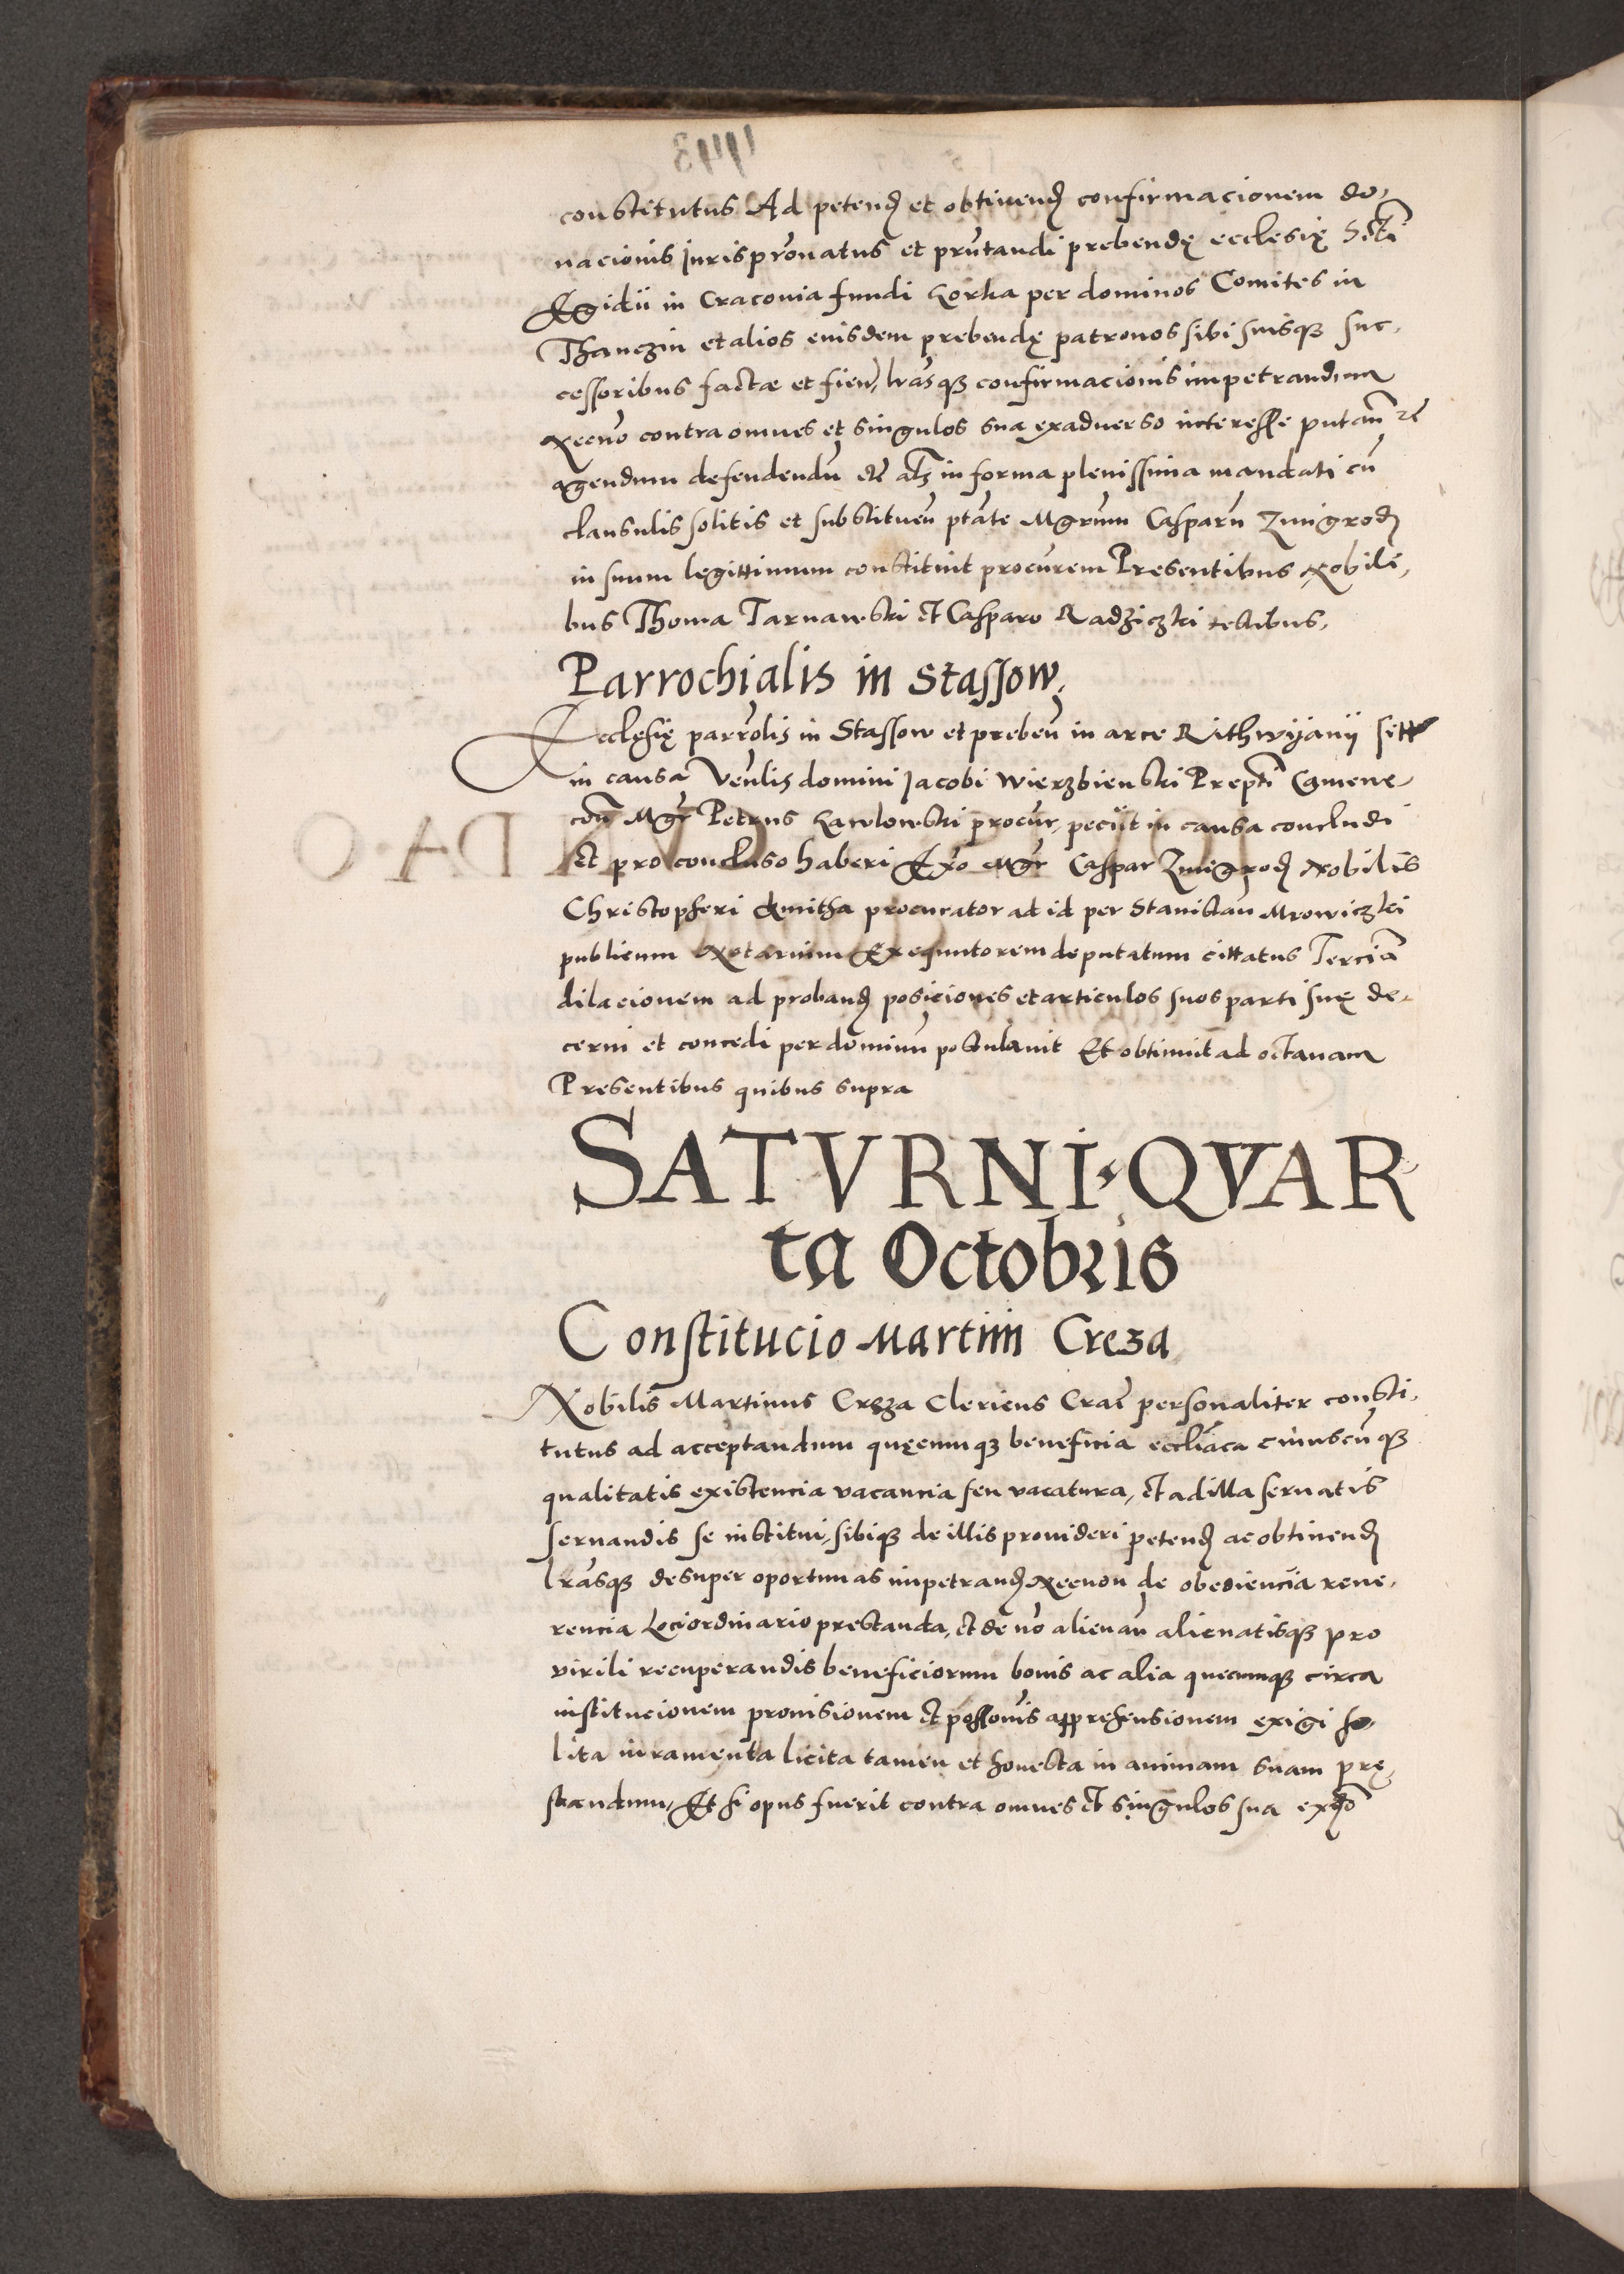 constitutus Ad petend et obtinend confirmacionem do,
nacionis Jurispronatus et prntandi prebendę ecclesię Scti
Egidii in Cracovia fundi Korka per dominos Comites in
Thanczin et alios eiusdem prebendę patronos sibi suisqz suc,
cessoribus factæ et fien, lrasqz confirmacionis impetrandum
Necno contra omnes et singulos sua exadverso interesse putan
agendum defendendu etc als in forma plenissima mandati cu
clausulis solitis et substituen ptate Mgrum Casparu Zmigrod
in suum legittimum constituit procurem Presentibus Nobili,
bus Thoma Tarnawski et Casparo Radziczki testibus,
Parrochialis in Stassow,
Ecclesię parrolis in Stassow et preben in arce Rithwijanij
in causa Venlis domini Jacobi Wierzbienski Prepti Camene
Mgr Petrus Kawlowski procur, peciit in causa concludi
et pro concluso haberi Exo Mgr Caspar Zmigrod Nobilis
Christopheri Kmitha procurator ad id per Stanislau Mrowiczki
publicum Notarium Exequutorem deputatum cittatus Tercia
dilacionem ad proband posiciones et articulos suos parti suę de,
cerni et concedi per dominu postulavit Et obtinuit ad octavam
Presentibus quibus supra
SATVRNI QVAR
ta Octobris
Constitucio Martini Creza
Nobilis Martinus Cręza Clericus Crac personaliter consti,
tutus ad acceptandum quęcumqz beneficia eccliaca cuiuscuqz
qualitatis existencia vacancia seu vacatura, et ad illa servatis
servandis se institui, sibiqz de illis provideri petend ac obtinend
lrasqz desuper oportunas impetrand Necnon de obediencia reve,
rencia Loci ordinario prestanda, et de no alienan alienatisqz pro
virili recuperandis beneficiorum bonis ac alia quecumqz circa
institucionem provisionem et possonis apprehensionem exigi so,
lita iuramenta licita tamen et honesta in animam suam prę,
standum, Et si opus fuerit contra omnes et singulos sua